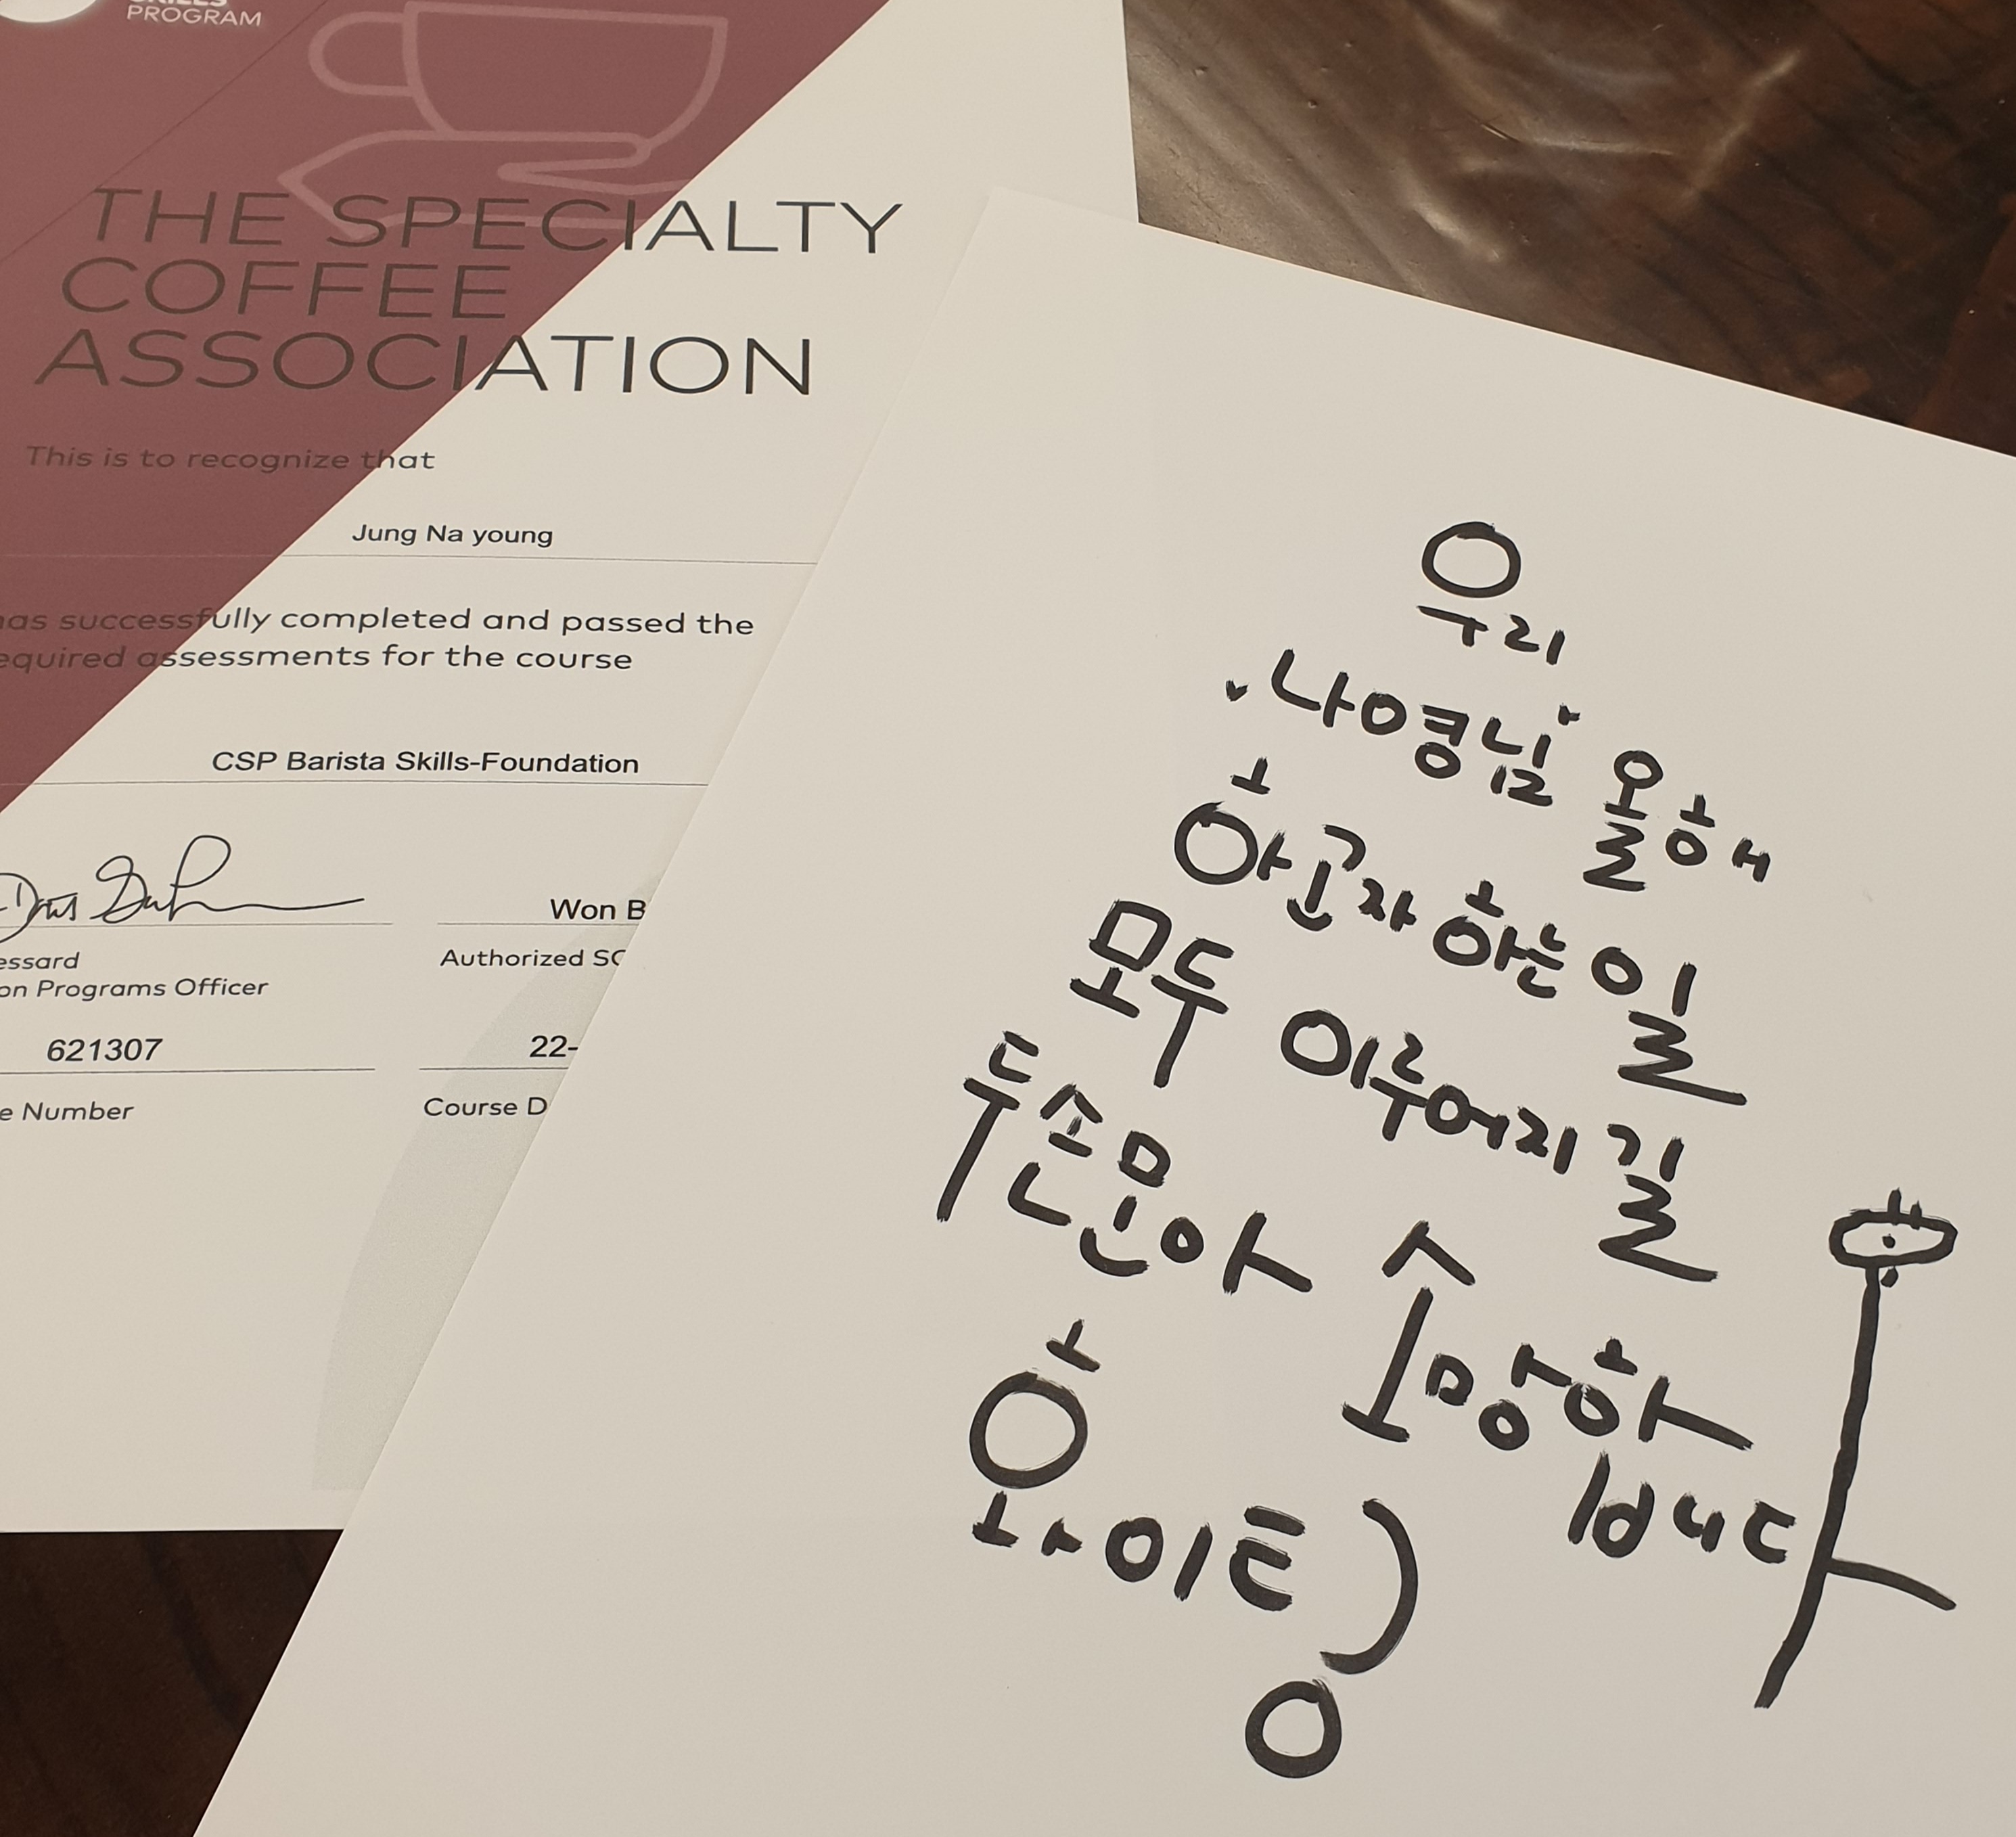 PROGRAM
THE SPECIALTY
COFFEE
ASSOCIATION
This is to recognize that
Jung Na young
has successfully completed and passed the
required assessments for the course
CSP Barista Skills-Foundation
Won B
essard
on Programs Officer
Authorized SC
621307
22-
e Number
Course D
우리
나영님 올해
하고자 하는 일
모두 이루어리길
두손모아 소망하
ㅂ니다
화이트)
ㅇ